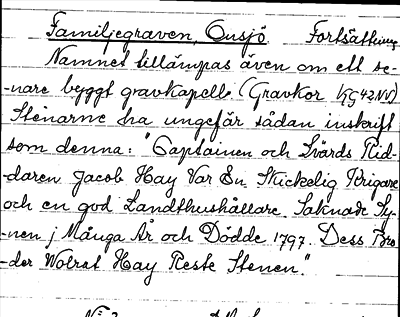 Familjegraven, Onsjö Fortsättning
Namnet tillämpas även om ett se-
-nare byggt gravkapell. (Gravkor
Stenarne ha ungefär sådan inskrift
som denna: "Captainen och Svärds Rid-
-daren Jacob Hay Var En Skickelig Krigare
och en god Landthushållare. Saknade Sy-
-nen j Många År och Dödde 1797. Dess Bro
-der Wolrat Hay Reste Stenen."